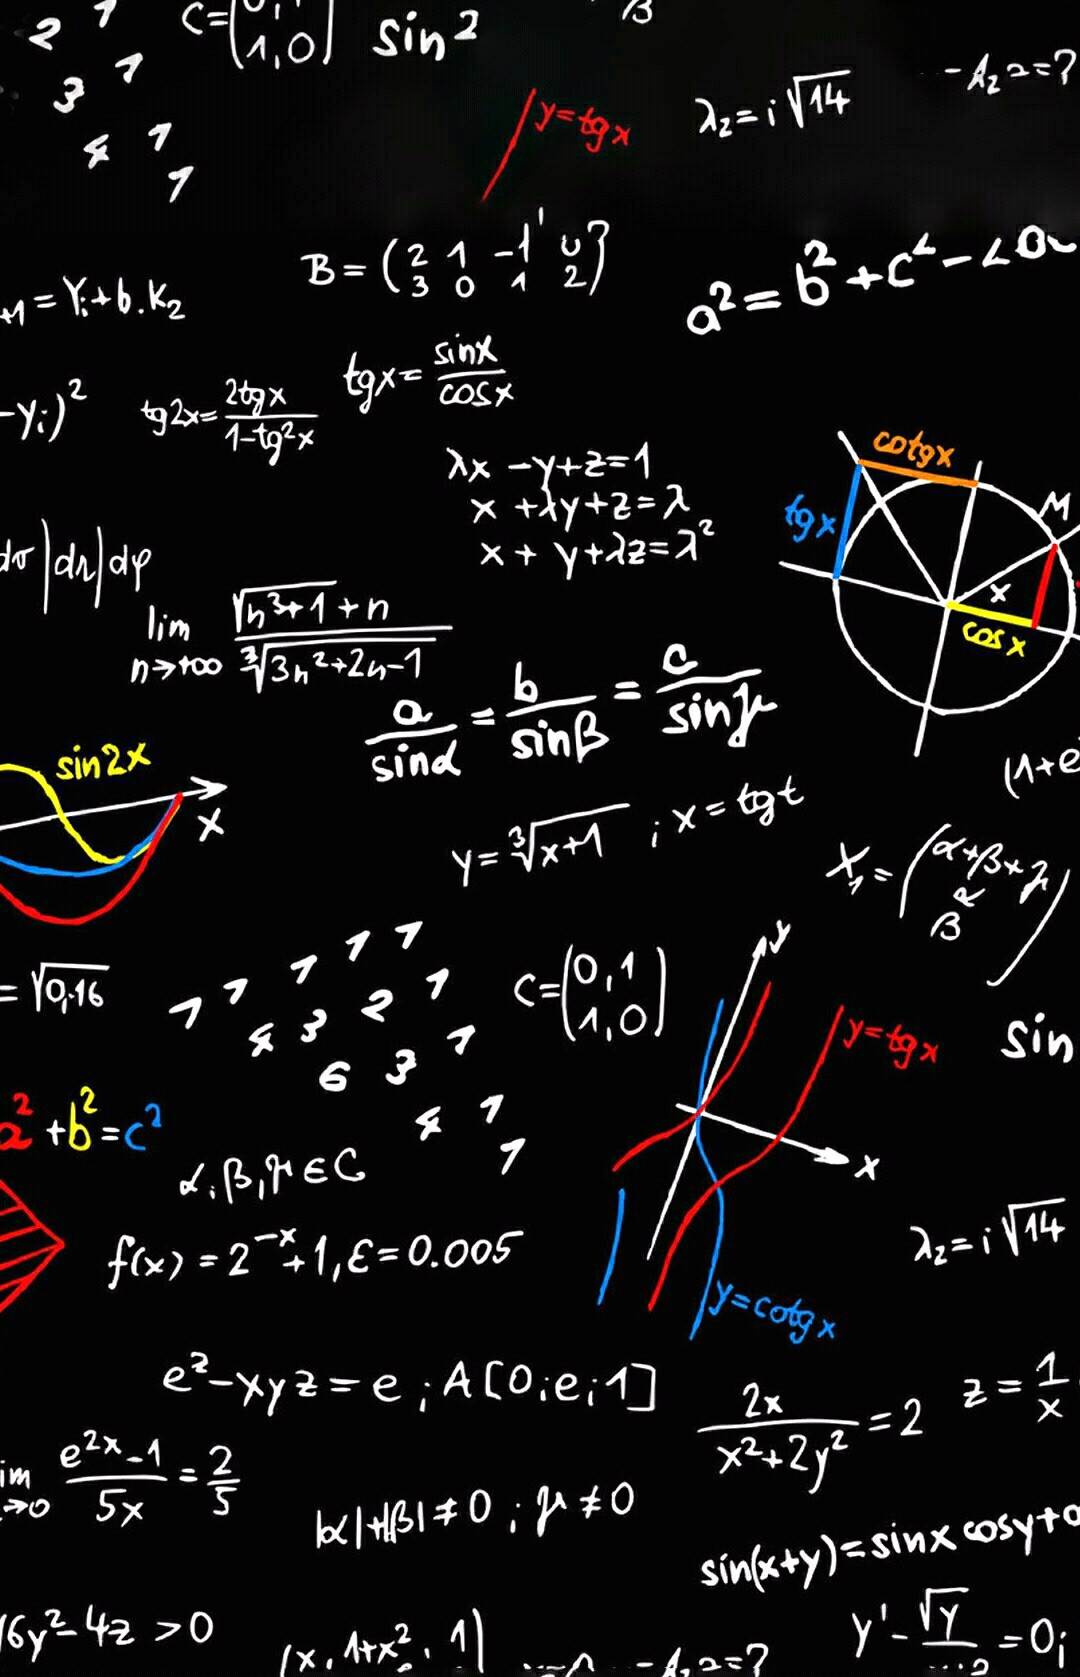 2 1
3 1
4 1
1
C=(0,1
1,0)
sin²
β
y=tgx
λ₂=i√14
-A₂ 2=?
B=(2 1 -1 0
3 0 1 2)
+1=Yᵢ+b.K₂
a²=b²+c²-2
-Yᵢ)²
tg2x=2tgx/1-tg²x
tgx=sinx/cosx
λx -y+z=1
x +λy+z=λ
x + y+λz=λ²
cotgx
tgx
M
x
cosx
|dr|dφ
lim n→+∞ √n³+1+n/∛3n²+2n-1
a/sinα=b/sinβ=c/sinγ
sin2x
x
(1+e
y=∛x+1 ; x=tgt
X₁=(α+β+γ
β)
=√0,16
1 1 1 1 1
4 3 2 1
6 3 1
4 1
1
C=(0,1
1,0)
y
y=tgx
x
y=cotgx
sin
a²+b²=c²
α,β,γ∈C
f(x)=2⁻ˣ+1,ε=0.005
λ₂=i√14
eᶻ-xyz=e;A[0;e;1]
2x/x²+2y²=2
z=1/x
im →0 e²ˣ-1/5x=2/5
|α|+|β|≠0;γ≠0
sin(x+y)=sinx cosy+
6y²-4z>0
(x,1+x²,1)
-A₂ 2=?
y'-√y =0;